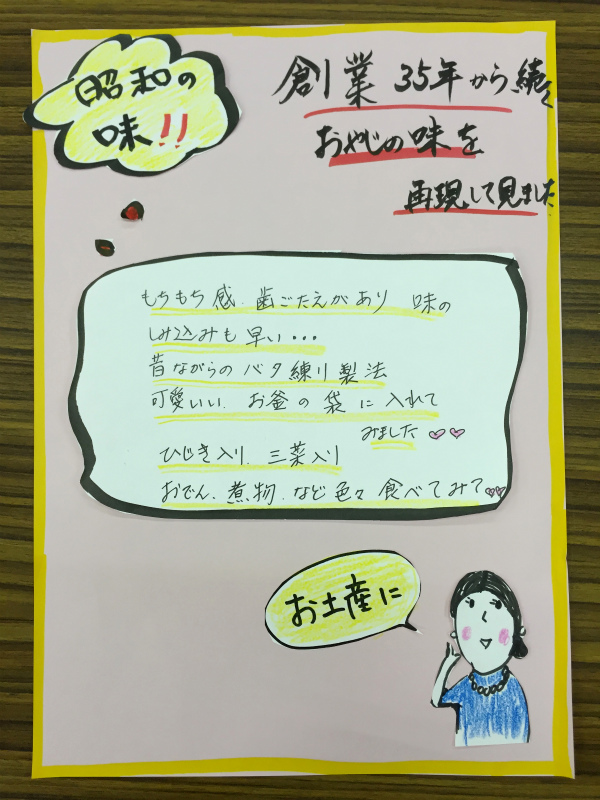 昭和の
味!!
創業 35年から続く
おやじの味を
再現して見ました
もちもち感、歯ごたえがあり 味の
しみ込みも早い・・・
昔ながらのバタ練り製法
可愛いい、お釜の袋に入れて
みました♡♡
ひじき入り、三菜入り
おでん、煮物、など色々食べてみて♡♡
お土産に